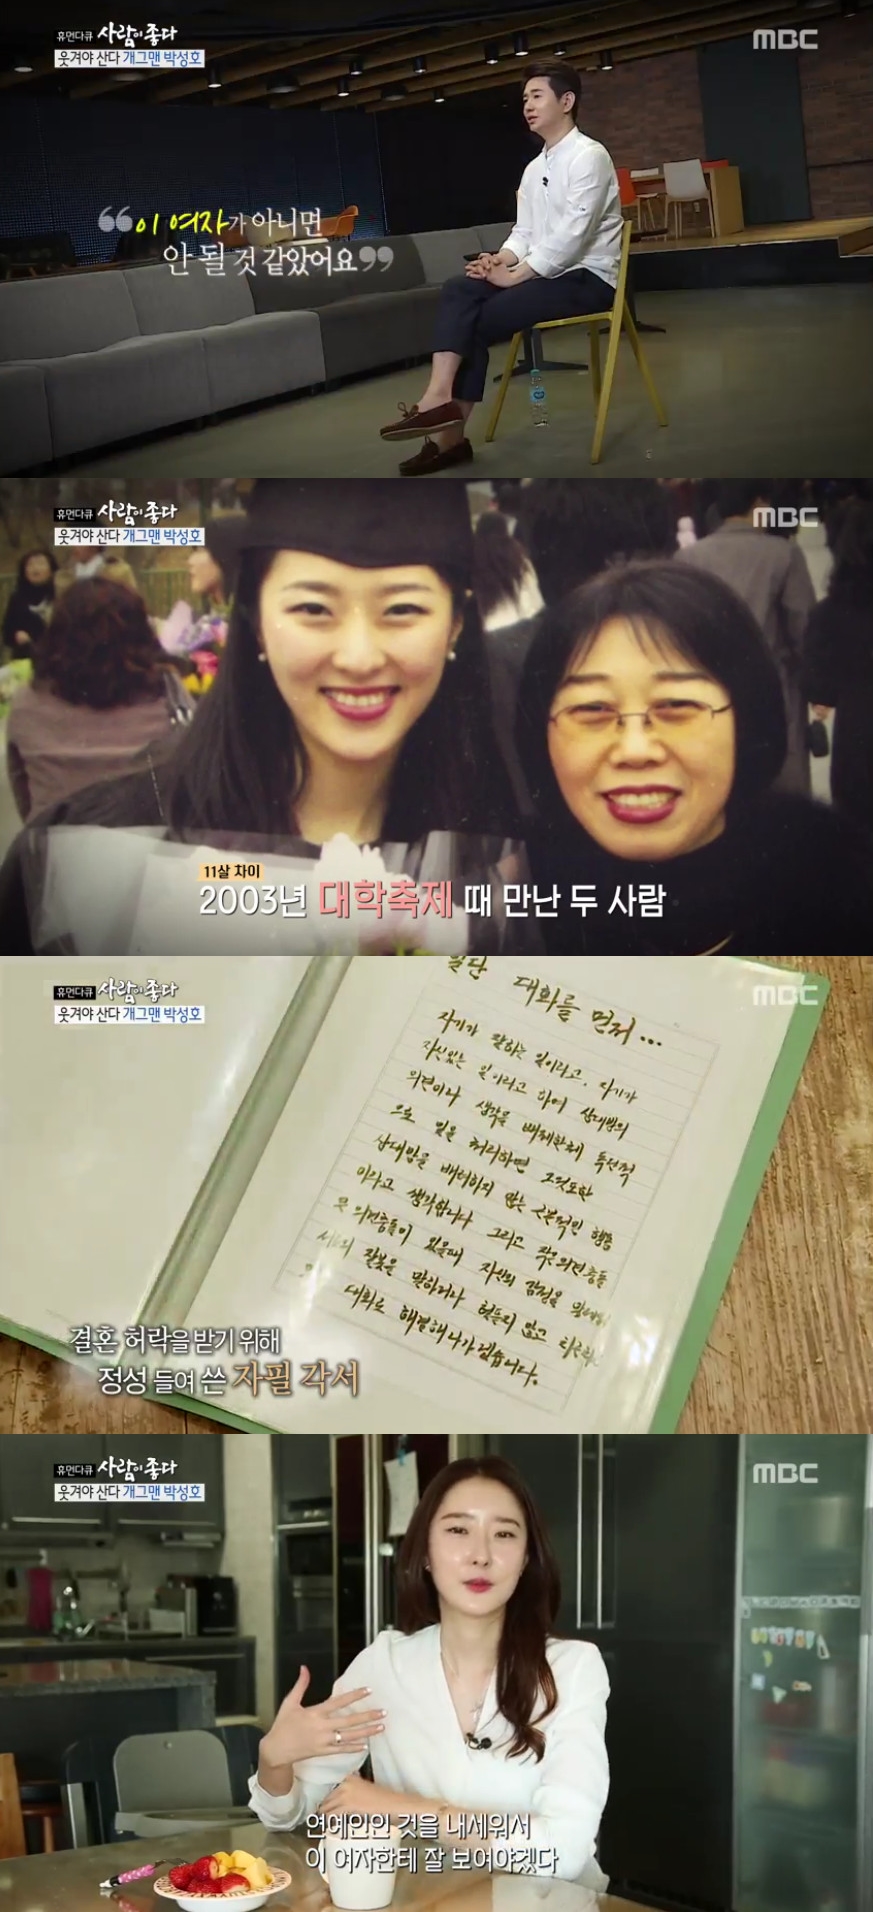 휴먼다큐 사람이 좋다
MBC
웃겨야 산다 개그맨 박성호
“이 여자가 아니면
안 될 것 같았어요”
휴먼다큐 사람이 좋다
MBC
웃겨야 산다 개그맨 박성호
11살 차이
2003년 대학축제 때 만난 두 사람
휴먼다큐 사람이 좋다
MBC
웃겨야 산다 개그맨 박성호
일단 대화를 먼저...
자기가 말하는 일이라고, 자기가
자신있는 일이라고 하여 상대방의
의견이나 생각을 배제한채 독선적
으로 일을 처리하면 그것또한
상대방을 배려하지 않는 근본적인 행동
이라고 생각합니다 그리고 작은의견충돌
큰 의견충돌이 있을때 자신의 감정을
잘못을 말하거나 헐뜯지 않고
대화로 해결해 나가겠습니다.
결혼 허락을 받기 위해
정성 들여 쓴 자필 각서
휴먼다큐 사람이 좋다
MBC
웃겨야 산다 개그맨 박성호
연예인인 것을 내세워서
이 여자한테 잘 보여야겠다